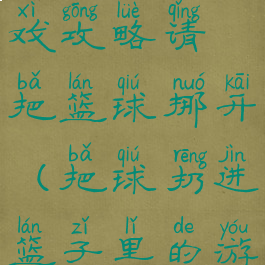 xì gōng lüè qǐng
戏攻略请
bǎ lán qiú nuó kāi
把篮球挪开
bǎ qiú rēng jìn
(把球扔进
lán zǐ lǐ de yóu
篮子里的游